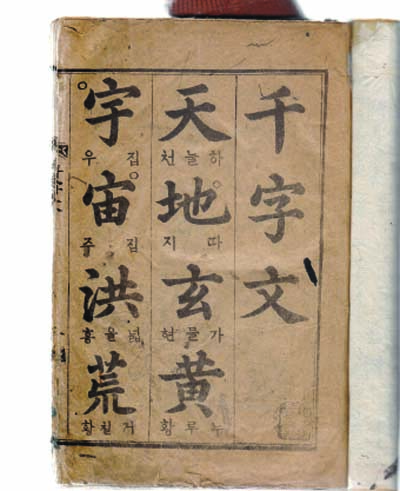 千字文
天
하늘천
地
따지
玄
가믈현
黄
누루황
宇
집우
宙
집쥬
洪
넓을홍
荒
거칠황